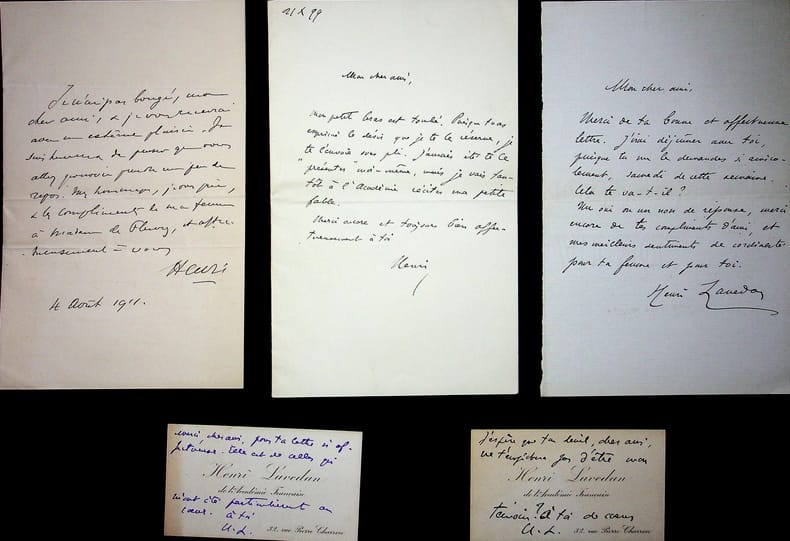 Je n'ai pas bougé, mon
cher ami, & je vous recevrai
avec un extrême plaisir. Je
suis heureux de penser que vous
allez pouvoir prendre un peu de
repos. Mes hommages, je vous prie,
& les compliments de ma femme
à madame de Fleury, et affec-
tueusement à vous
Henri
4 Août 1911.
21 X 99
Mon cher ami,
Mon petit bras est foulé. Puisque tu as
exprimé le désir que je te le réserve, je
te l'envoie sous pli. J'aurais été te le
"présenter" moi-même, mais je vais tan-
tôt à l'Académie réciter ma petite
fable.
Merci encore et toujours bien affec-
tueusement à toi
Henri
Mon cher ami,
Merci de ta bonne et affectueuse
lettre. J'irai déjeuner avec toi,
puisque tu me le demandes si amica-
lement, samedi de cette semaine.
Cela te va-t-il?
Un oui ou un non de réponse, merci
encore de tes compliments d'ami, et
mes meilleurs sentiments de cordialité
pour ta femme et pour toi.
Henri Lavedan
merci, cher ami, pour ta lettre si af-
fectueuse. Elle est de celles qui
Henri Lavedan
de l'Académie Française
m'ont été particulièrement au
cœur. à toi
H. L. 32, rue Pierre Charron
J'espère que ton deuil, cher ami,
ne t'empêchera pas d'être mon
Henri Lavedan
de l'Académie Française
témoin? à toi de cœur
H. L. 32, rue Pierre Charron